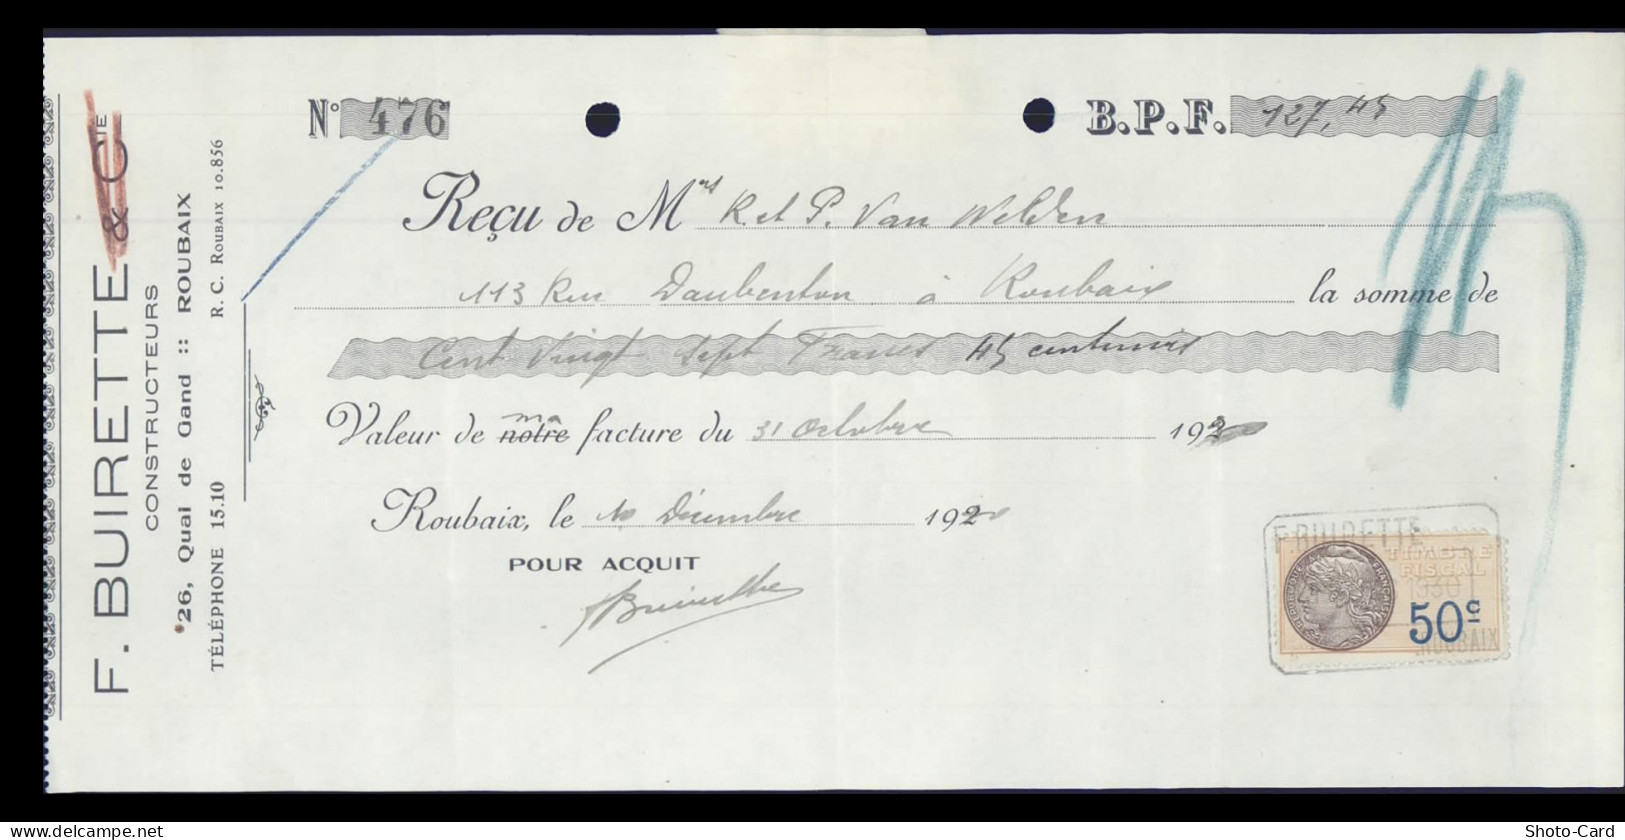 F. BUIRETTE & Cie
CONSTRUCTEURS
26, Quai de Gand :: ROUBAIX
TÉLÉPHONE 15.10 R. C. ROUBAIX 10.856
No 476 B.P.F. 127,45
Reçu de Mrs R et P. Van Welden
113 Rue Daubenton à Roubaix la somme de
Cent Vingt Sept Francs 45 centimes
ma
Valeur de notre facture du 31 Octobre 192
Roubaix, le 10 Décembre 192
POUR ACQUIT
FBuirette
F. BUIRETTE
TIMBRE
FISCAL
RÉPUBLIQUE FRANÇAISE
1930
50c
ROUBAIX
Shoto-Card